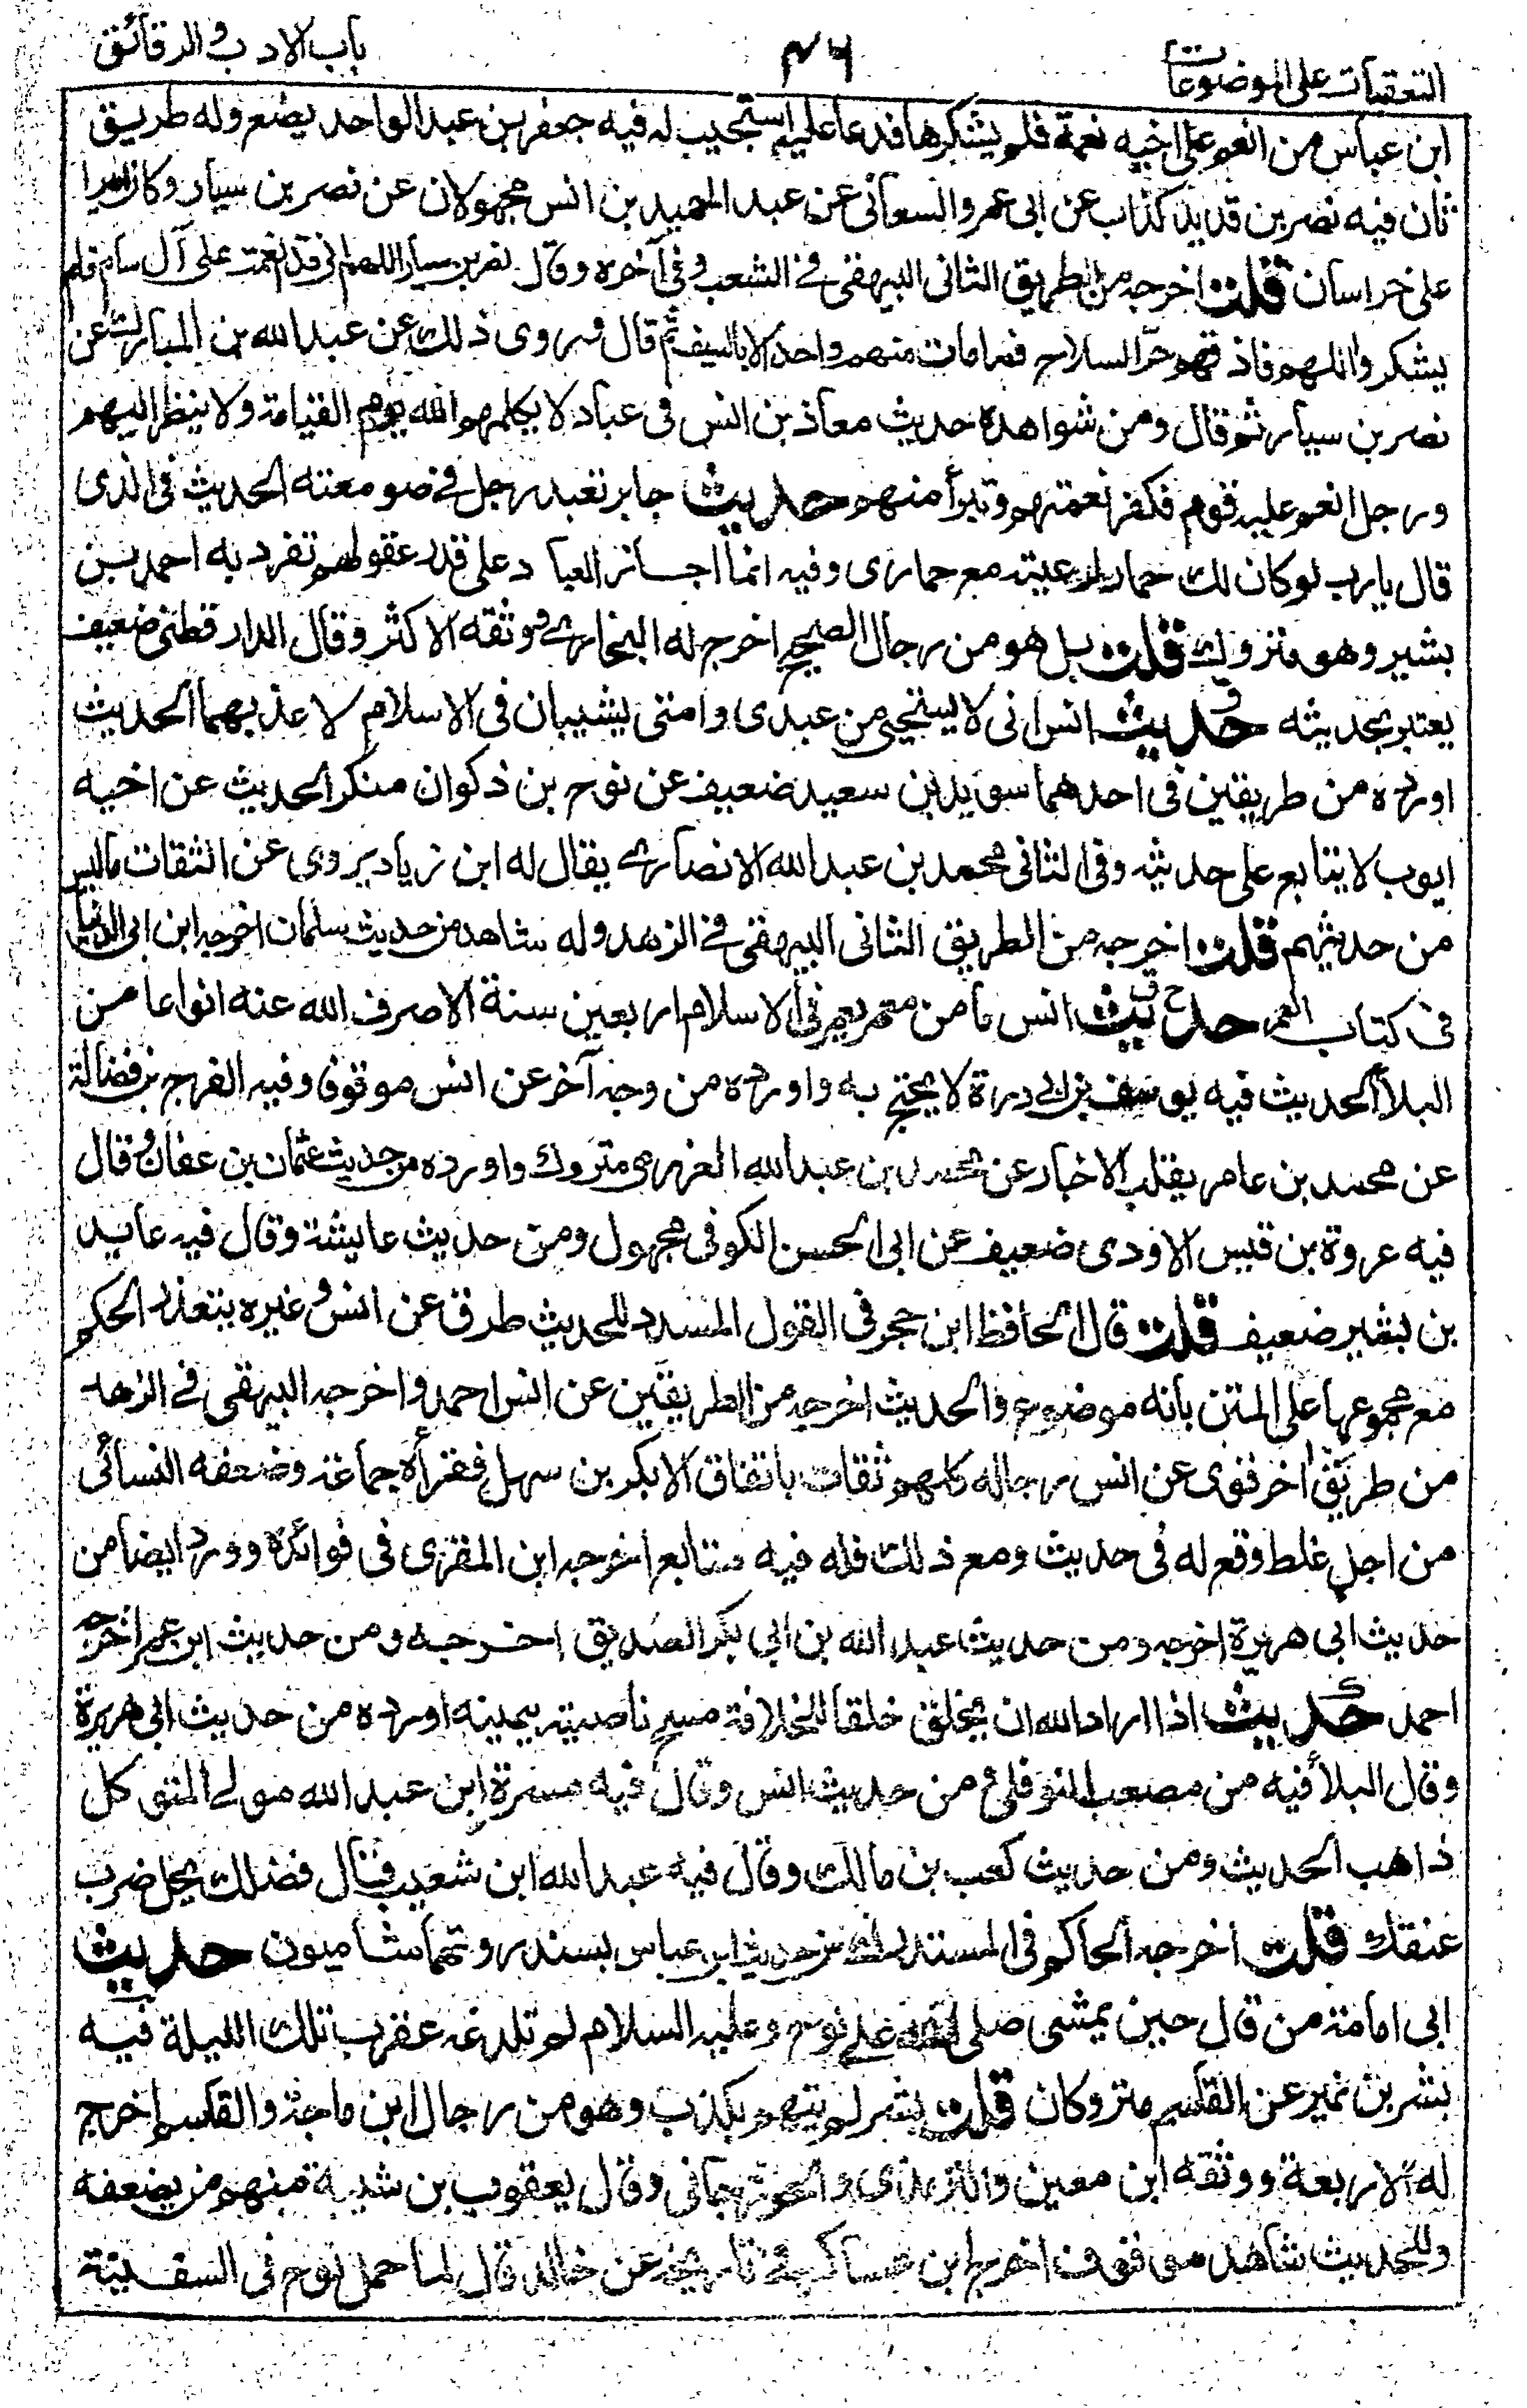 التعقبات على الموضوعات
٤٦
باب الادب والرقائق
ابن عباس من انعم على اخيه نعمة فلم يشكرها فدعا عليه استجيب له فيه جعفر بن عبد الواحد يضع وله طريق
ثان فيه نصر بن قديد كذاب عن ابى عمرو السعانى عن عبد الحميد بن انس مجهولان عن نصر بن سيار وكان اميرا
على خراسان قلت اخرجه من الطريق الثانى البيهقى فى الشعب وفى آخره وقال نصر بن سيار اللهم انى قد انعمت على آل سام فلم
يشكروا اللهم فاذقهم حر السلاح فما مات منهم واحد الا بالسيف ثم قال وروى ذلك عن عبد الله بن المبارك عن
نصر بن سيار ثم قال ومن شواهده حديث معاذ بن انس فى عباد لا يكلمهم الله يوم القيامة ولا ينظر اليهم
ورجل انعم عليه قوم فكفر نعمتهم وتبرأ منهم حديث جابر تعبد رجل فى صومعته الحديث فى الذى
قال يا رب لو كان لك حمار لرعيته مع حمارى وفيه انما اجازى العباد على قدر عقولهم تفرد به احمد بن
بشير وهو متروك قلت بل هو من رجال الصحيح اخرج له البخارى ووثقه الاكثر وقال الدارقطنى ضعيف
يعتبر بحديثه حديث انس انى لا يستحيى من عبدى وامتى يشيبان فى الاسلام لاعذبهما الحديث
اورده من طريقين فى احدهما سويد بن سعيد ضعيف عن نوح بن ذكوان منكر الحديث عن اخيه
ايوب لا يتابع على حديثه وفى الثانى محمد بن عبد الله الانصارى يقال له ابن زياد يروى عن الثقات ما ليس
من حديثهم قلت اخرجه من الطريق الثانى البيهقى فى الزهد وله شاهد من حديث سلمان اخرجه ابن ابى الدنيا
فى كتاب العمر حديث انس ما من معمر يعمر فى الاسلام اربعين سنة الا صرف الله عنه انواعا من
البلاء الحديث فيه يوسف بن ابى درة لا يحتج به واورده من وجه آخر عن انس موقوفا وفيه الفرج بن فضالة
عن محمد بن عامر يقلب الاخبار عن محمد بن عبد الله العزرمى متروك واورده من حديث عثمان بن عفان وقال
فيه عروة بن قيس الاودى ضعيف عن ابى الحسن الكوفى مجهول ومن حديث عايشة وقال فيه عايد
بن بشير ضعيف قلت قال الحافظ ابن حجر فى القول المسدد للحديث طرق عن انس وغيره يتعذر الحكم
مع مجموعها على المتن بانه موضوع والحديث اخرجه من الطريقين عن انس احمد واخرجه البيهقى فى الزهد
من طريق اخر قوى عن انس رجاله كلهم ثقات باتفاق الا بكر بن سهل فقرأه جماعة وضعفه النسائى
من اجل غلط وقع له فى حديث ومع ذلك فله فيه متابع اخرجه ابن المقرى فى فوائده وورد ايضا من
حديث ابى هريرة اخرجه ومن حديث عبد الله بن ابى بكر الصديق اخرجه ومن حديث ابن عمر اخرجه
احمد حديث اذا اراد الله ان يخلق خلقا للخلافة مسح ناصيته بيمينه اورده من حديث ابى هريرة
وقال البلاء فيه من مصعب النوفلى ومن حديث انس وقال فيه مسرة ابن عبد الله مولى المتوكل
ذاهب الحديث ومن حديث كعب بن مالك وقال فيه عبد الله ابن شعيب قال فضلك يحل ضرب
عنقك قلت اخرجه الحاكم فى المستدرك من حديث ابن عباس بسند رواته هاشميون حديث
ابى امامة من قال حين يمشى صلى الله على نوح وعليه السلام لم تلدغه عقرب تلك الليلة فيه
بشر بن نمير عن القاسم متروكان قلت بشر لم يتهم بكذب وهو من رجال ابن ماجة والقاسم اخرج
له الاربعة ووثقه ابن معين والترمذى والجوزجانى وقال يعقوب بن شيبة منهم من يضعفه
وللحديث شاهد موقوف اخرجه ابن عساكر فى تاريخه عن خالد قال لما حمل نوح فى السفينة